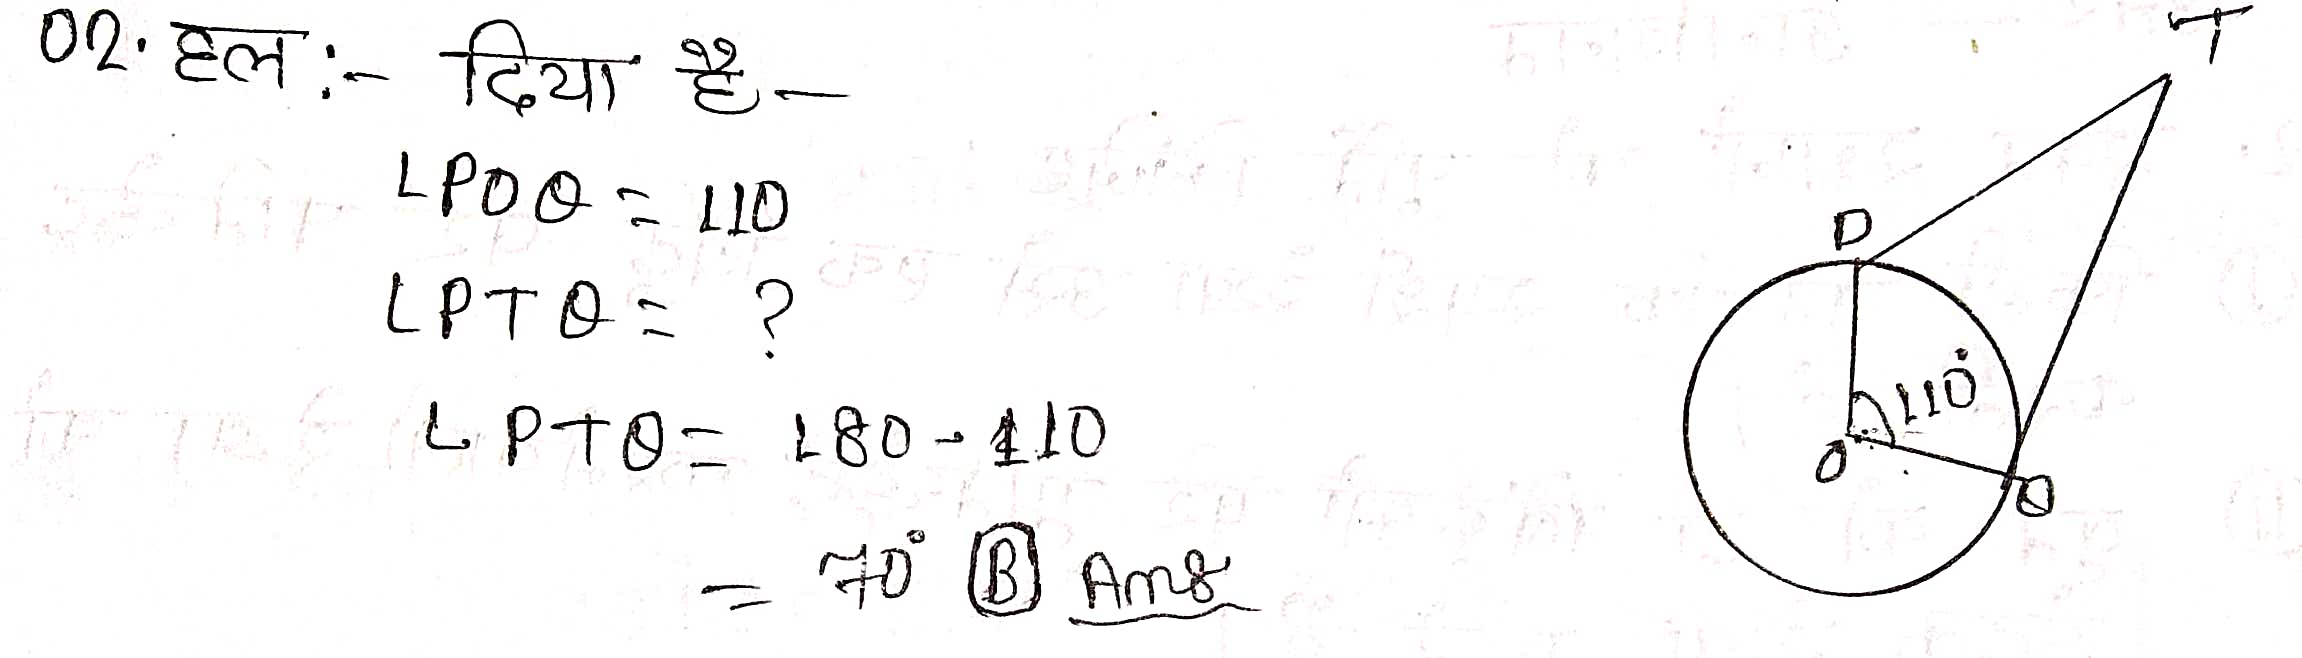 02. हल :- दिया है -
∠POQ = 110
∠PTQ = ?
∠PTQ = 180 - 110
= 70° B Ans
T
P
110°
O
Q